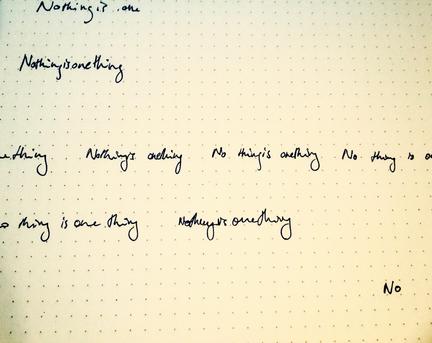 Nothing is one
Nothingisonething
thing Nothingis onething No thingis onething No thing is
thing is one thing Nothingisonething
No